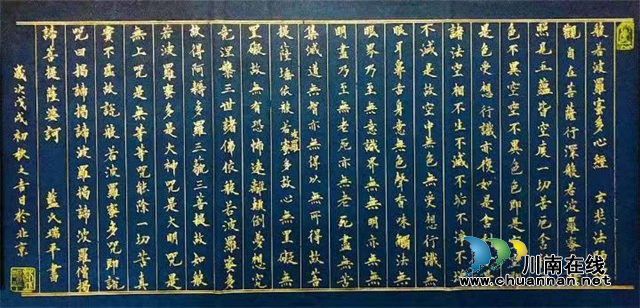 般若波羅蜜多心經 玄奘法
觀自在菩薩行深般若波羅蜜
照見五蘊皆空度一切苦厄舍
色不異空空不異色色即是
是色受想行識亦復如是舍
諸法空相不生不滅不垢不淨不
不滅是故空中無色無受想行識無
眼耳鼻舌身意無色聲香味觸法無
眼界乃至無意識界無無明亦無無
明盡乃至無老死亦無老死盡無苦
集滅道無智亦無得以無所得故菩
提薩埵依般若波羅蜜多故心無罣礙無
罣礙故無有恐怖遠離顛倒夢想究
竟涅槃三世諸佛依般若波羅蜜多
故得阿耨多羅三藐三菩提故知般
若波羅蜜多是大神咒是大明咒是
無上咒是無等等咒能除一切苦真
實不虛故說般若波羅蜜多咒即說
咒曰揭諦揭諦波羅揭諦波羅僧揭
諦菩提薩婆訶 藍氏瑞平書
歲次戊戌初秋之吉日於北京
川南在线
www.chuannan.net